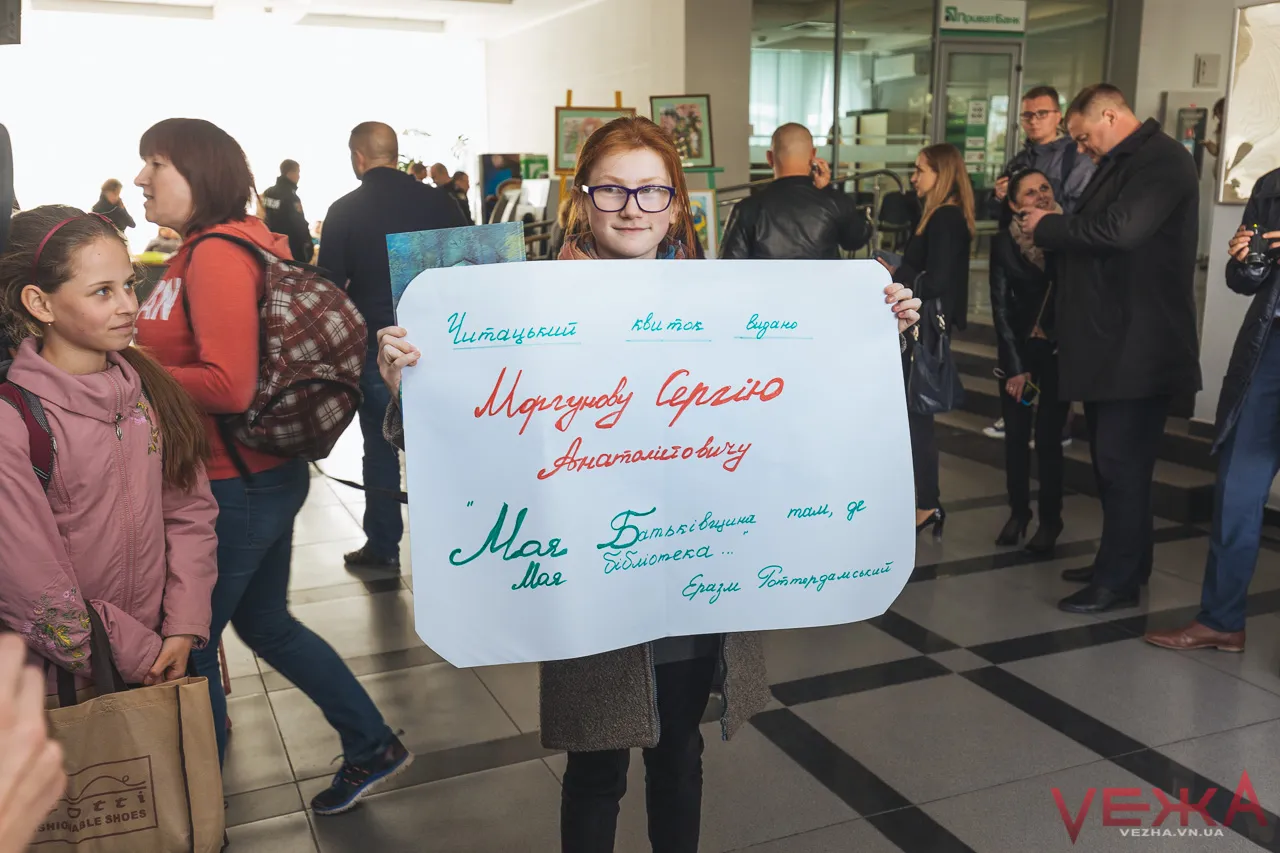 ПриватБанк
Читацький квиток видано
Моргунову Сергію
Анатолійовичу
"Моя Батьківщина там, де
Моя бібліотека..."
Еразм Роттердамський
AN
ABLE SHOES
ВЕЖА
VEZHA.VN.UA